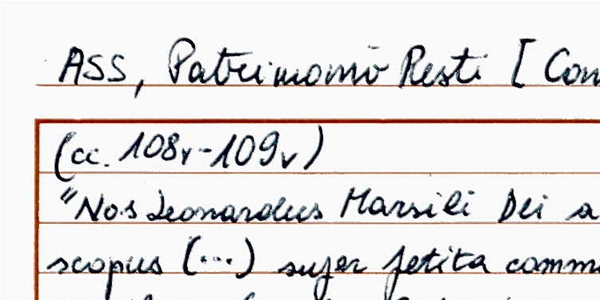 ASS, Patrimonio Resti [ Con
(cc. 108v-109v)
"Nos Leonardus Marsili Dei a
scopus (...) super petita comm